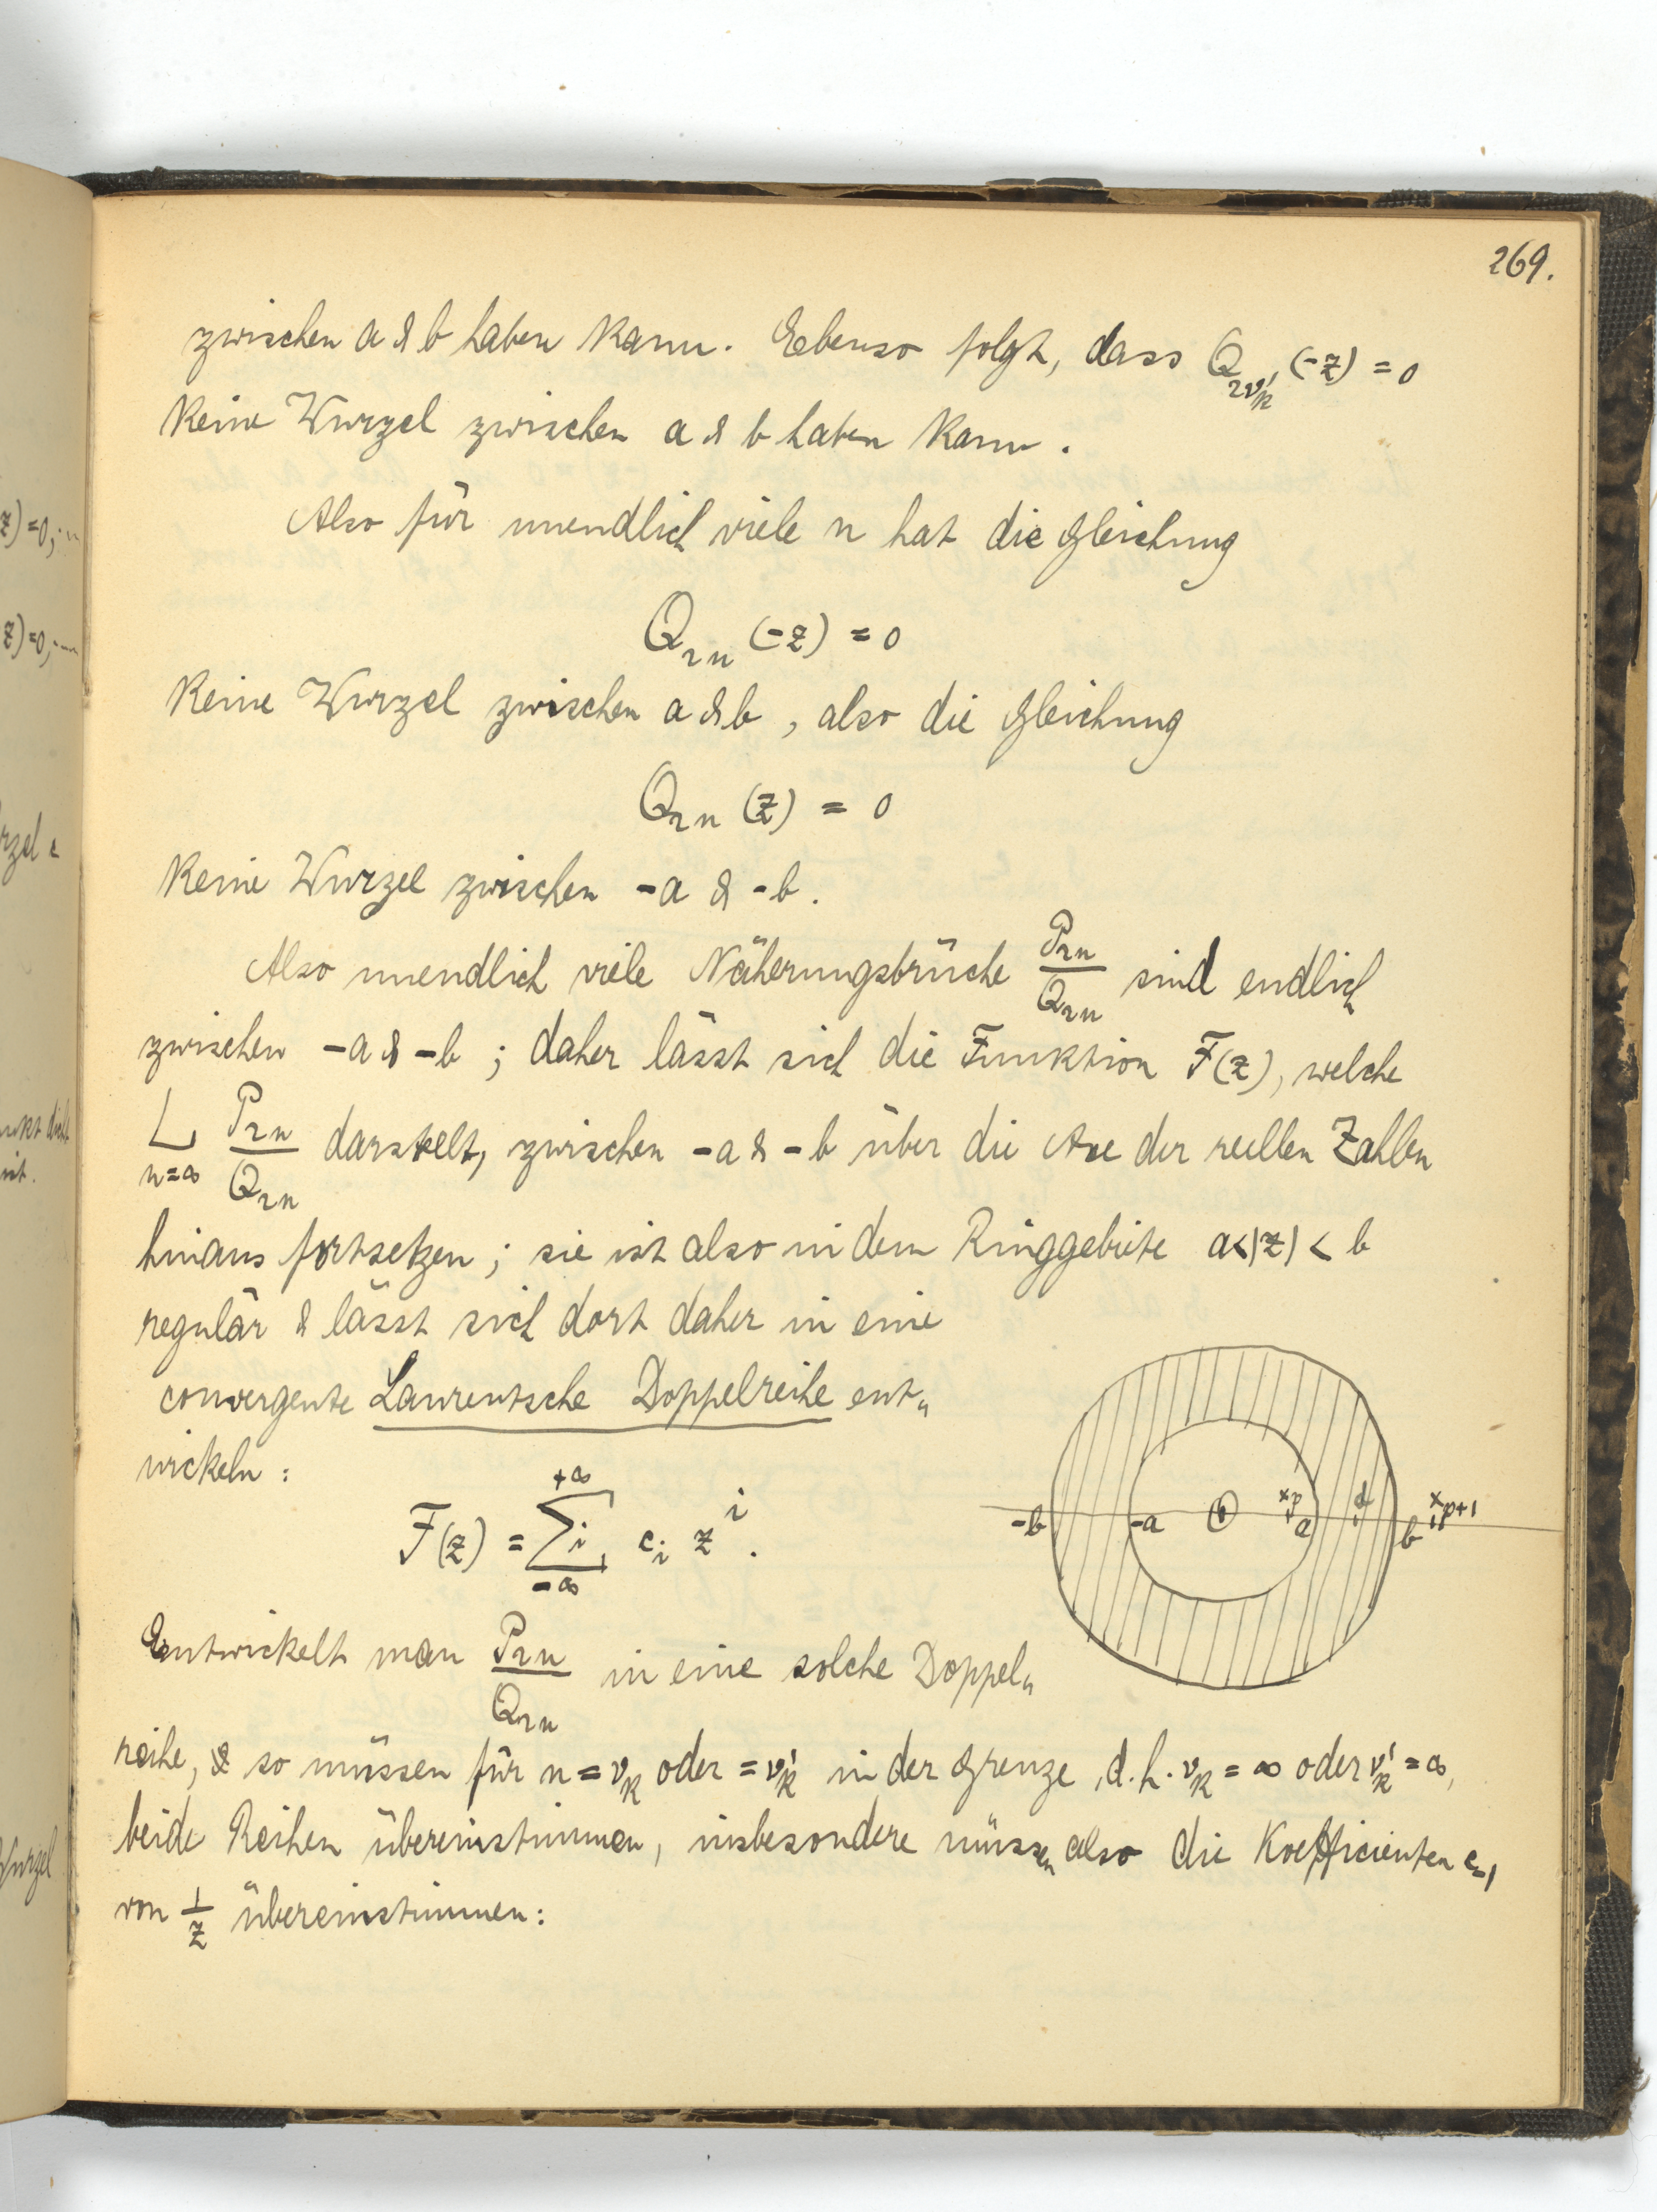 269.
zwischen a & b haben kann. Ebenso folgt, dass Q_{2ν'_k}(-z) = 0
keine Wurzel zwischen a & b haben kann.
Also für unendlich viele n hat die Gleichung
Q_{2n}(-z) = 0
keine Wurzel zwischen a & b, also die Gleichung
Q_{2n}(z) = 0
keine Wurzel zwischen -a & -b.
Also unendlich viele Näherungsbrüche P_{2n}/Q_{2n} sind endlich
zwischen -a & -b; daher lässt sich die Funktion F(z), welche
L_{n=∞} P_{2n}/Q_{2n} darstelt, zwischen -a & -b über die Axe der reellen Zahlen
hinaus fortsetzen; sie ist also in dem Ringgebiete a<|z|< b
regulär & lässt sich dort daher in eine
convergente Laurentsche Doppelreihe ent„
wickeln:
F(z) = ∑_{-∞}^{+∞} i, c_i z^i.
-b -a 0 x_p a d b x_{p+1}
Entwickelt man P_{2n}/Q_{2n} in eine solche Doppel„
reihe, & so müssen für n = ν_k oder = ν'_k in der Grenze, d.h. ν_k = ∞ oder ν'_k = ∞,
beide Reihen übereinstimmen, insbesondere müssen also die Koefficienten c_{-1}
von 1/z übereinstimmen:
z) = 0, ...
z) = 0, ...